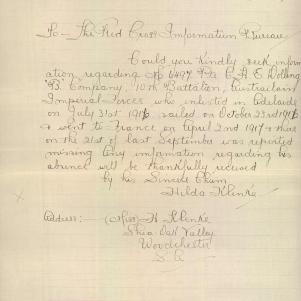 To - The Red Cross Information Bureau
Could you kindly seek inform
ation regarding No 6497 Pte C. A. E Dolling
"B" Company, 10th Battalion, Australian
Imperial Forces who enlisted in Adelaide
on July 31st 1916 sailed on October 23rd 1916
& went to France on April 2nd 1917 &
on the 21st of last September was reported
missing Any information regarding his
absence will be thankfully received
by his Sincere Chum
Hilda Klenke
Address:- (Miss) H Klenke
Shea Oak Valley
Woodchester
S. A.